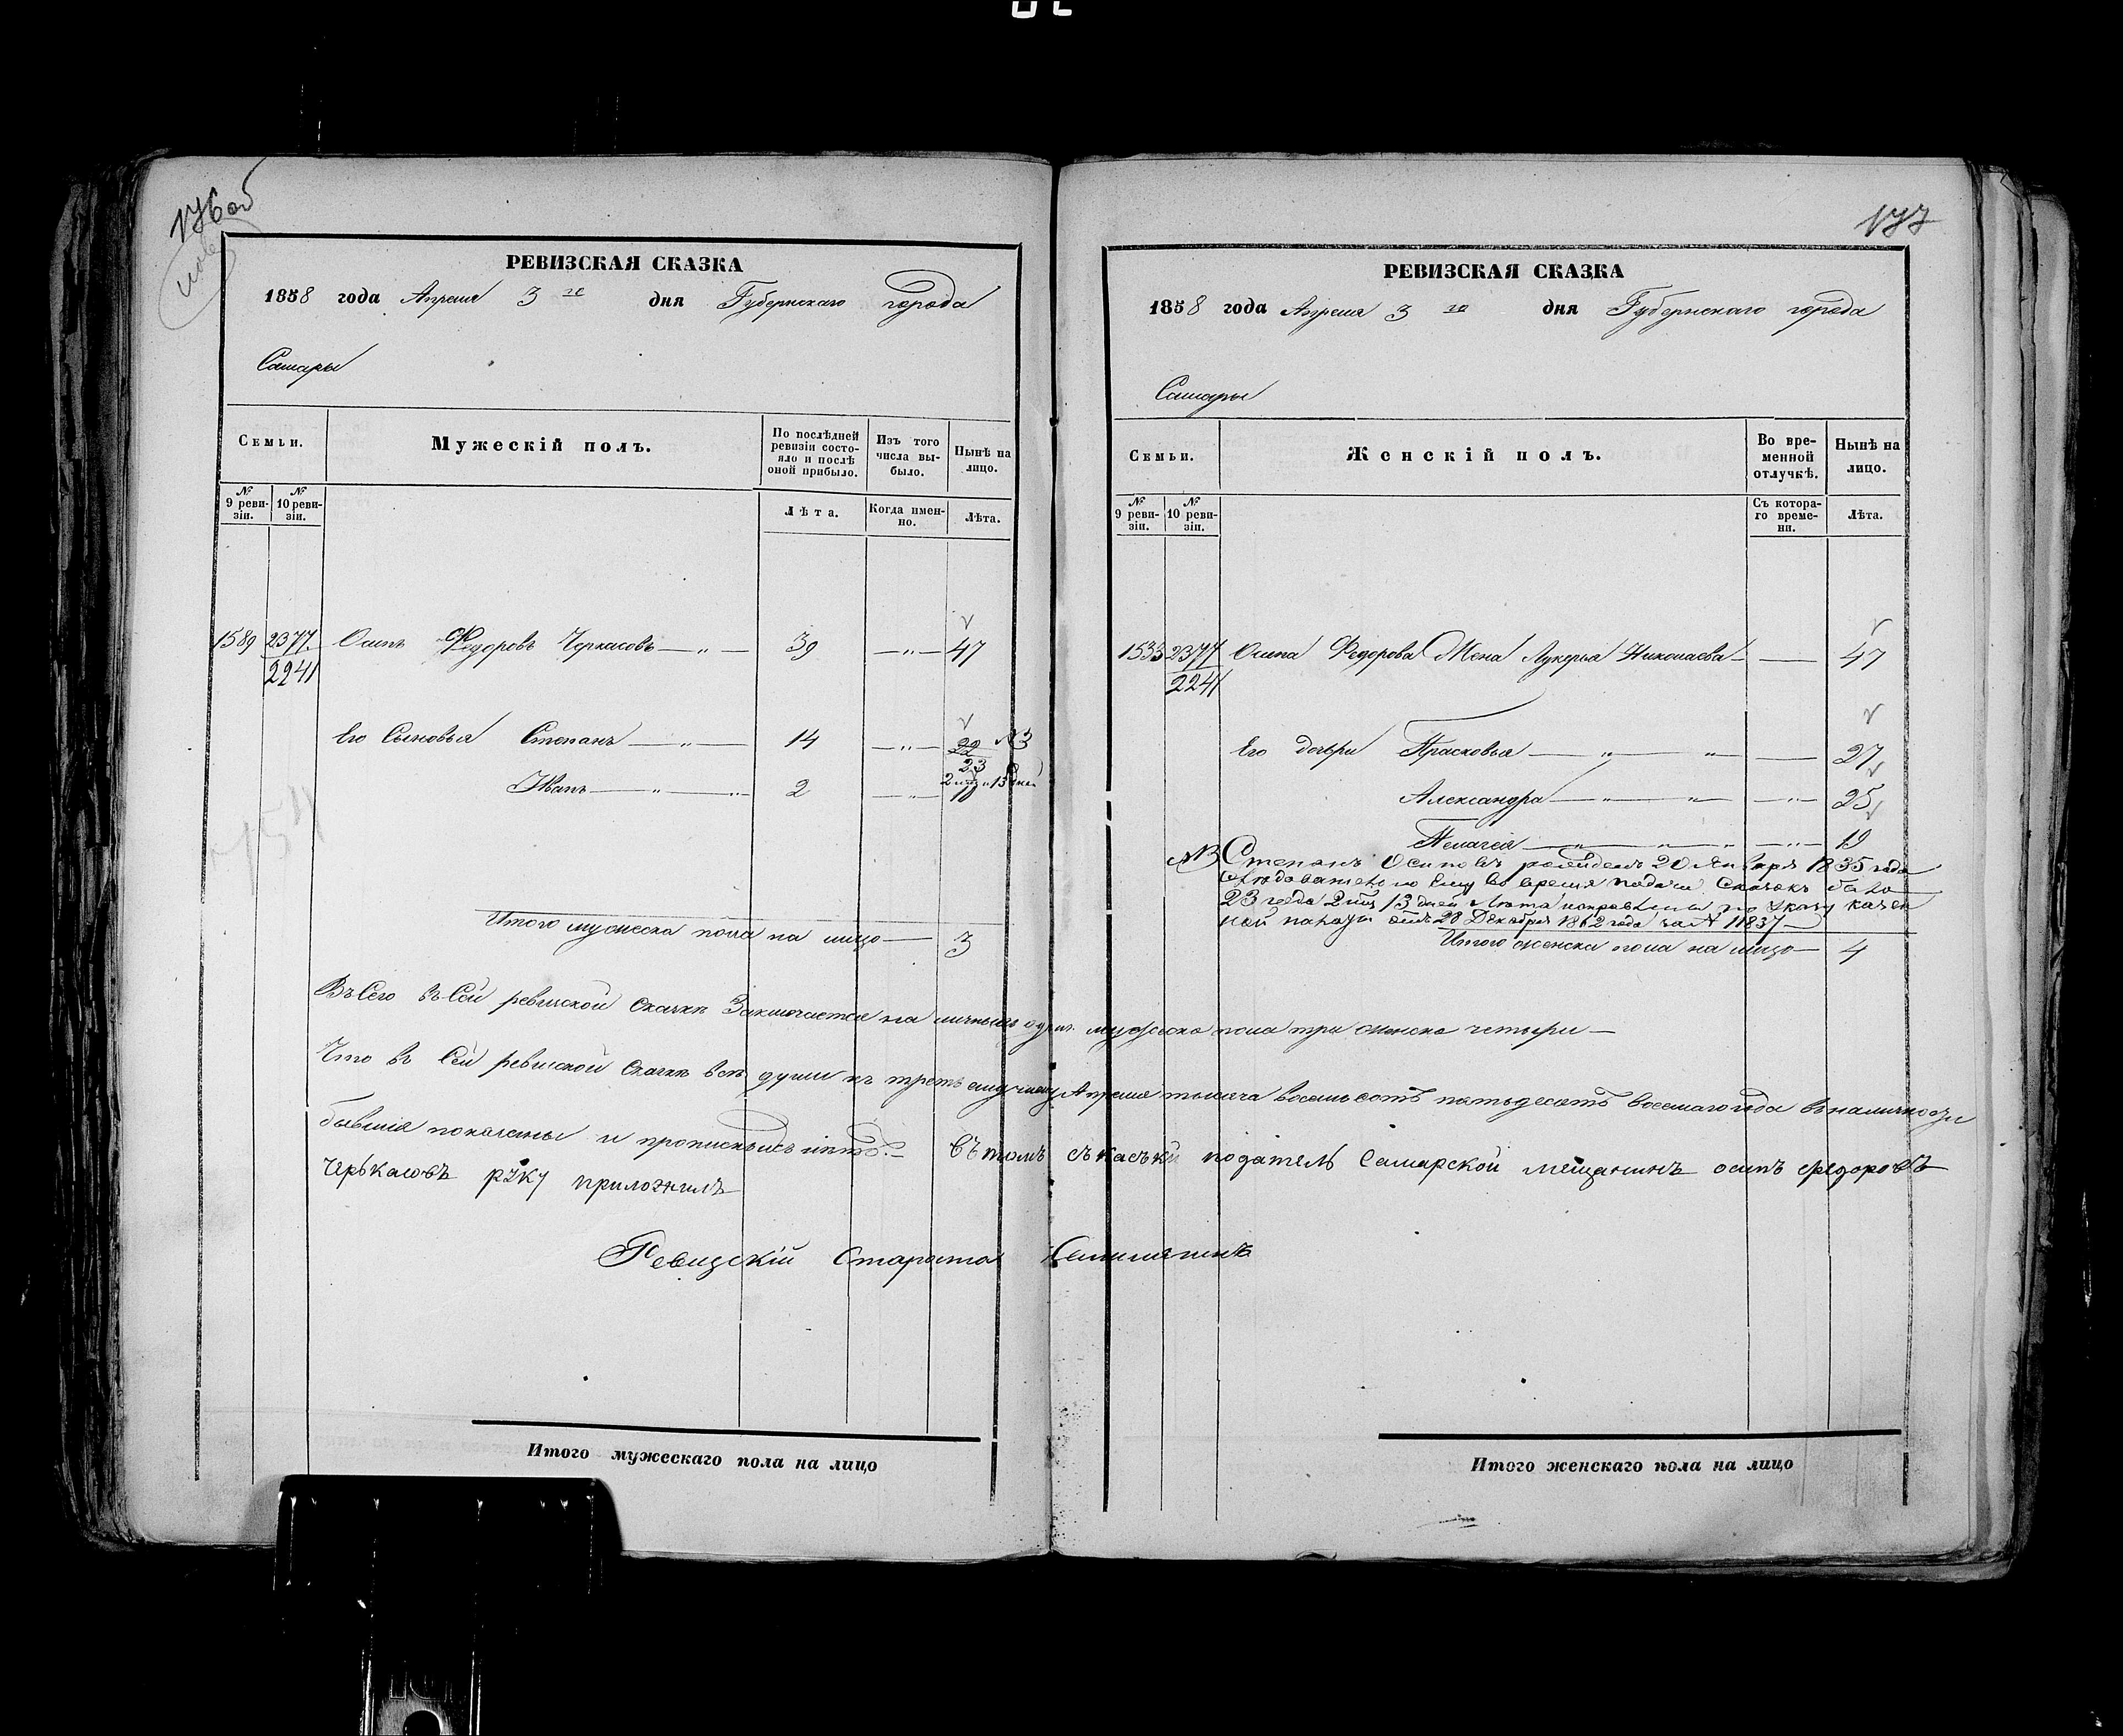 176 об
177
РЕВИЗСКАЯ СКАЗКА
1858 года Апреля 3 го дня Губернскаго города
Самары
Семьи.
Мужескій полъ.
По послѣдней ревизіи состояло и послѣ оной прибыло.
Изъ того числа выбыло.
Нынѣ на лицо.
№ 9 ревизіи.
№ 10 ревизіи.
Лѣта.
Когда именно.
Лѣта.
1589 2377 Осипъ Федоровъ Черкасовъ — „ — 39 — „ — 47
2241
Его Сыновья Степанъ — „ — 14 — „ — 22 NB
23
2 мѣс. 13 дней
Иванъ — „ — „ 2 — „ — 10
Итого мужеска пола на лицо — 3
РЕВИЗСКАЯ СКАЗКА
1858 года Апреля 3 го дня Губернскаго города
Самары
Семьи.
Женскій полъ.
Во временной отлучкѣ.
Нынѣ на лицо.
№ 9 ревизіи.
№ 10 ревизіи.
Съ котораго времени.
Лѣта.
1533 2377 Осипа Федорова Жена Лукерья Николаева — — 47
2241
Его дочери Прасковья — „ — „ — — 27
Александра — „ — „ — — „ — 25
Пелагея — „ — „ — „ — „ — 19
NB Степанъ Осиповъ рожденъ 20 Января 1835 года
следовательно ему во время подачи сказокъ было
23 года 2 мѣс 13 дней Лѣта исправлены по Указу казен
ной палаты отъ 28 Декабря 1862 года за № 11837 —
Итого женска пола на лицо — 4
Въсего въ Сей ревиской Скаске Заключается на личныхъ душъ мужеска пола три женска четыри —
Что въ Сей ревиской Скаске все души къ третьему числу Апреля тысяча восемьсотъ пятьдесятъ восмаго года въ наличности
бывшія показаны и прописныхъ нетъ. — Въ томъ съкасъки податель Самарской мещанинъ осипъ федоровъ
черькасовъ руку приложилъ
Ревизскій Староста
Итого мужескаго пола на лицо
Итого женскаго пола на лицо